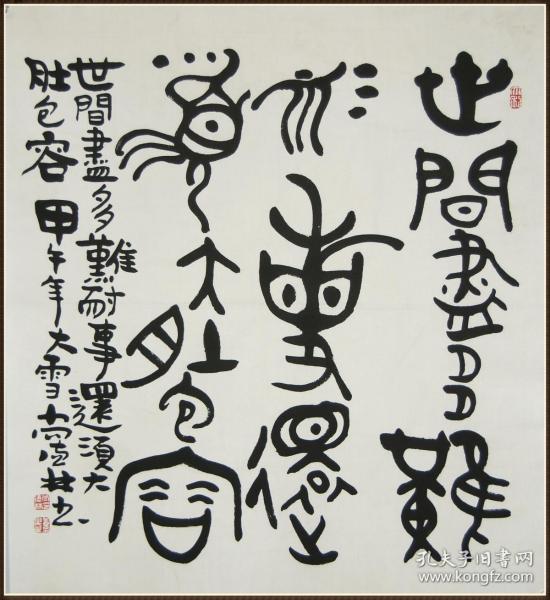 世間盡多難
耐事還
須大肚包容
世間盡多難耐事還須大
肚包容 甲午年大雪
孔夫子旧书网
www.kongfz.com